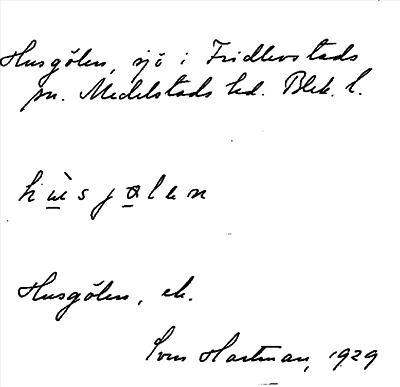 Husgölen, sjö i Fridlevstads
sn. Medelstads hd. Blek. l.
hùsjɑlen
Husgölen, ek.
Sven Hartman, 1929